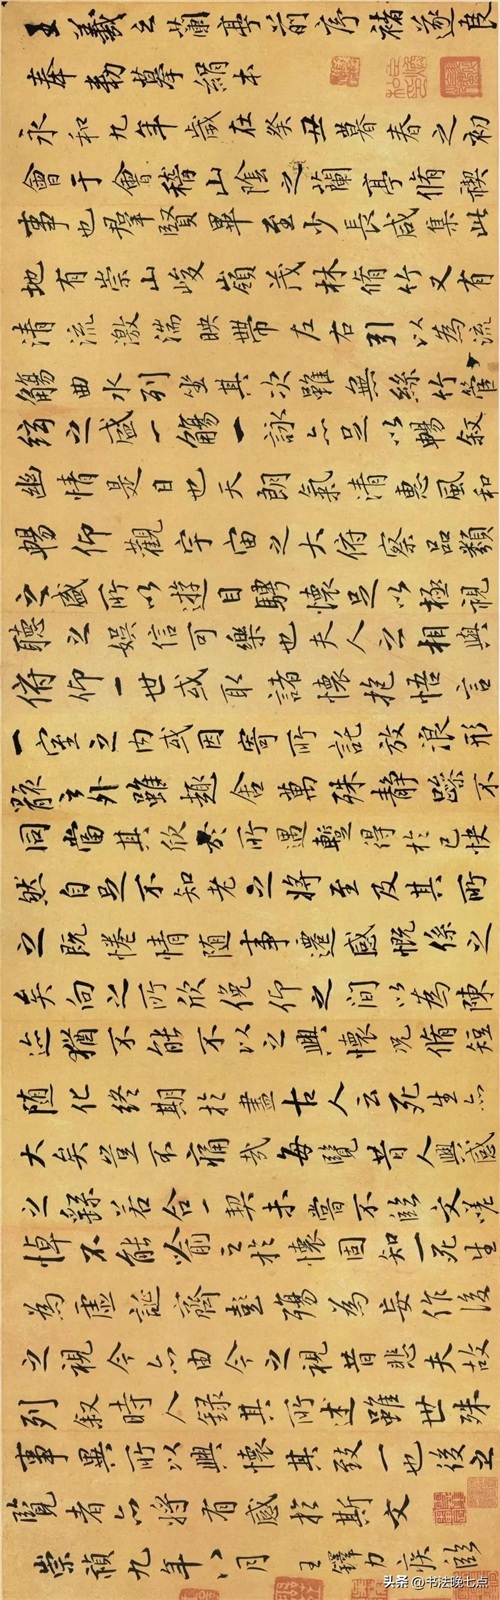 王羲之蘭亭前序褚遂良
奉勅摹絹本
永和九年歲在癸丑暮春之初
會于會稽山陰之蘭亭脩禊
事也羣賢畢至少長咸集此
地有崇山峻嶺茂林脩竹又有
清流激湍映帶左右引以為流
觴曲水列坐其次雖無絲竹管
絃之盛一觴一詠亦足以暢叙
幽情是日也天朗氣清惠風和
暢仰觀宇宙之大俯察品類
之盛所以遊目騁懷足以極視
聽之娛信可樂也夫人之相與
俯仰一世或取諸懷抱悟言
一室之内或因寄所託放浪形
骸之外雖趣舍萬殊靜躁不
同當其欣於所遇暫得於己快
然自足不知老之將至及其所
之既惓情随事遷感慨係之
矣向之所欣俛仰之間以為陳
迹猶不能不以之興懷況脩短
随化終期於盡古人云死生亦
大矣豈不痛哉每覽昔人興感
之繇若合一契未嘗不臨文嗟
悼不能喻之於懷固知一死生
為虛誕齊彭殤為妄作後
之視今亦由今之視昔悲夫故
列叙時人録其所述雖世殊
事異所以興懷其致一也後之
覽者亦將有感於斯文
崇禎九年八月 王鐸力疾臨
头条 @书法晚七点